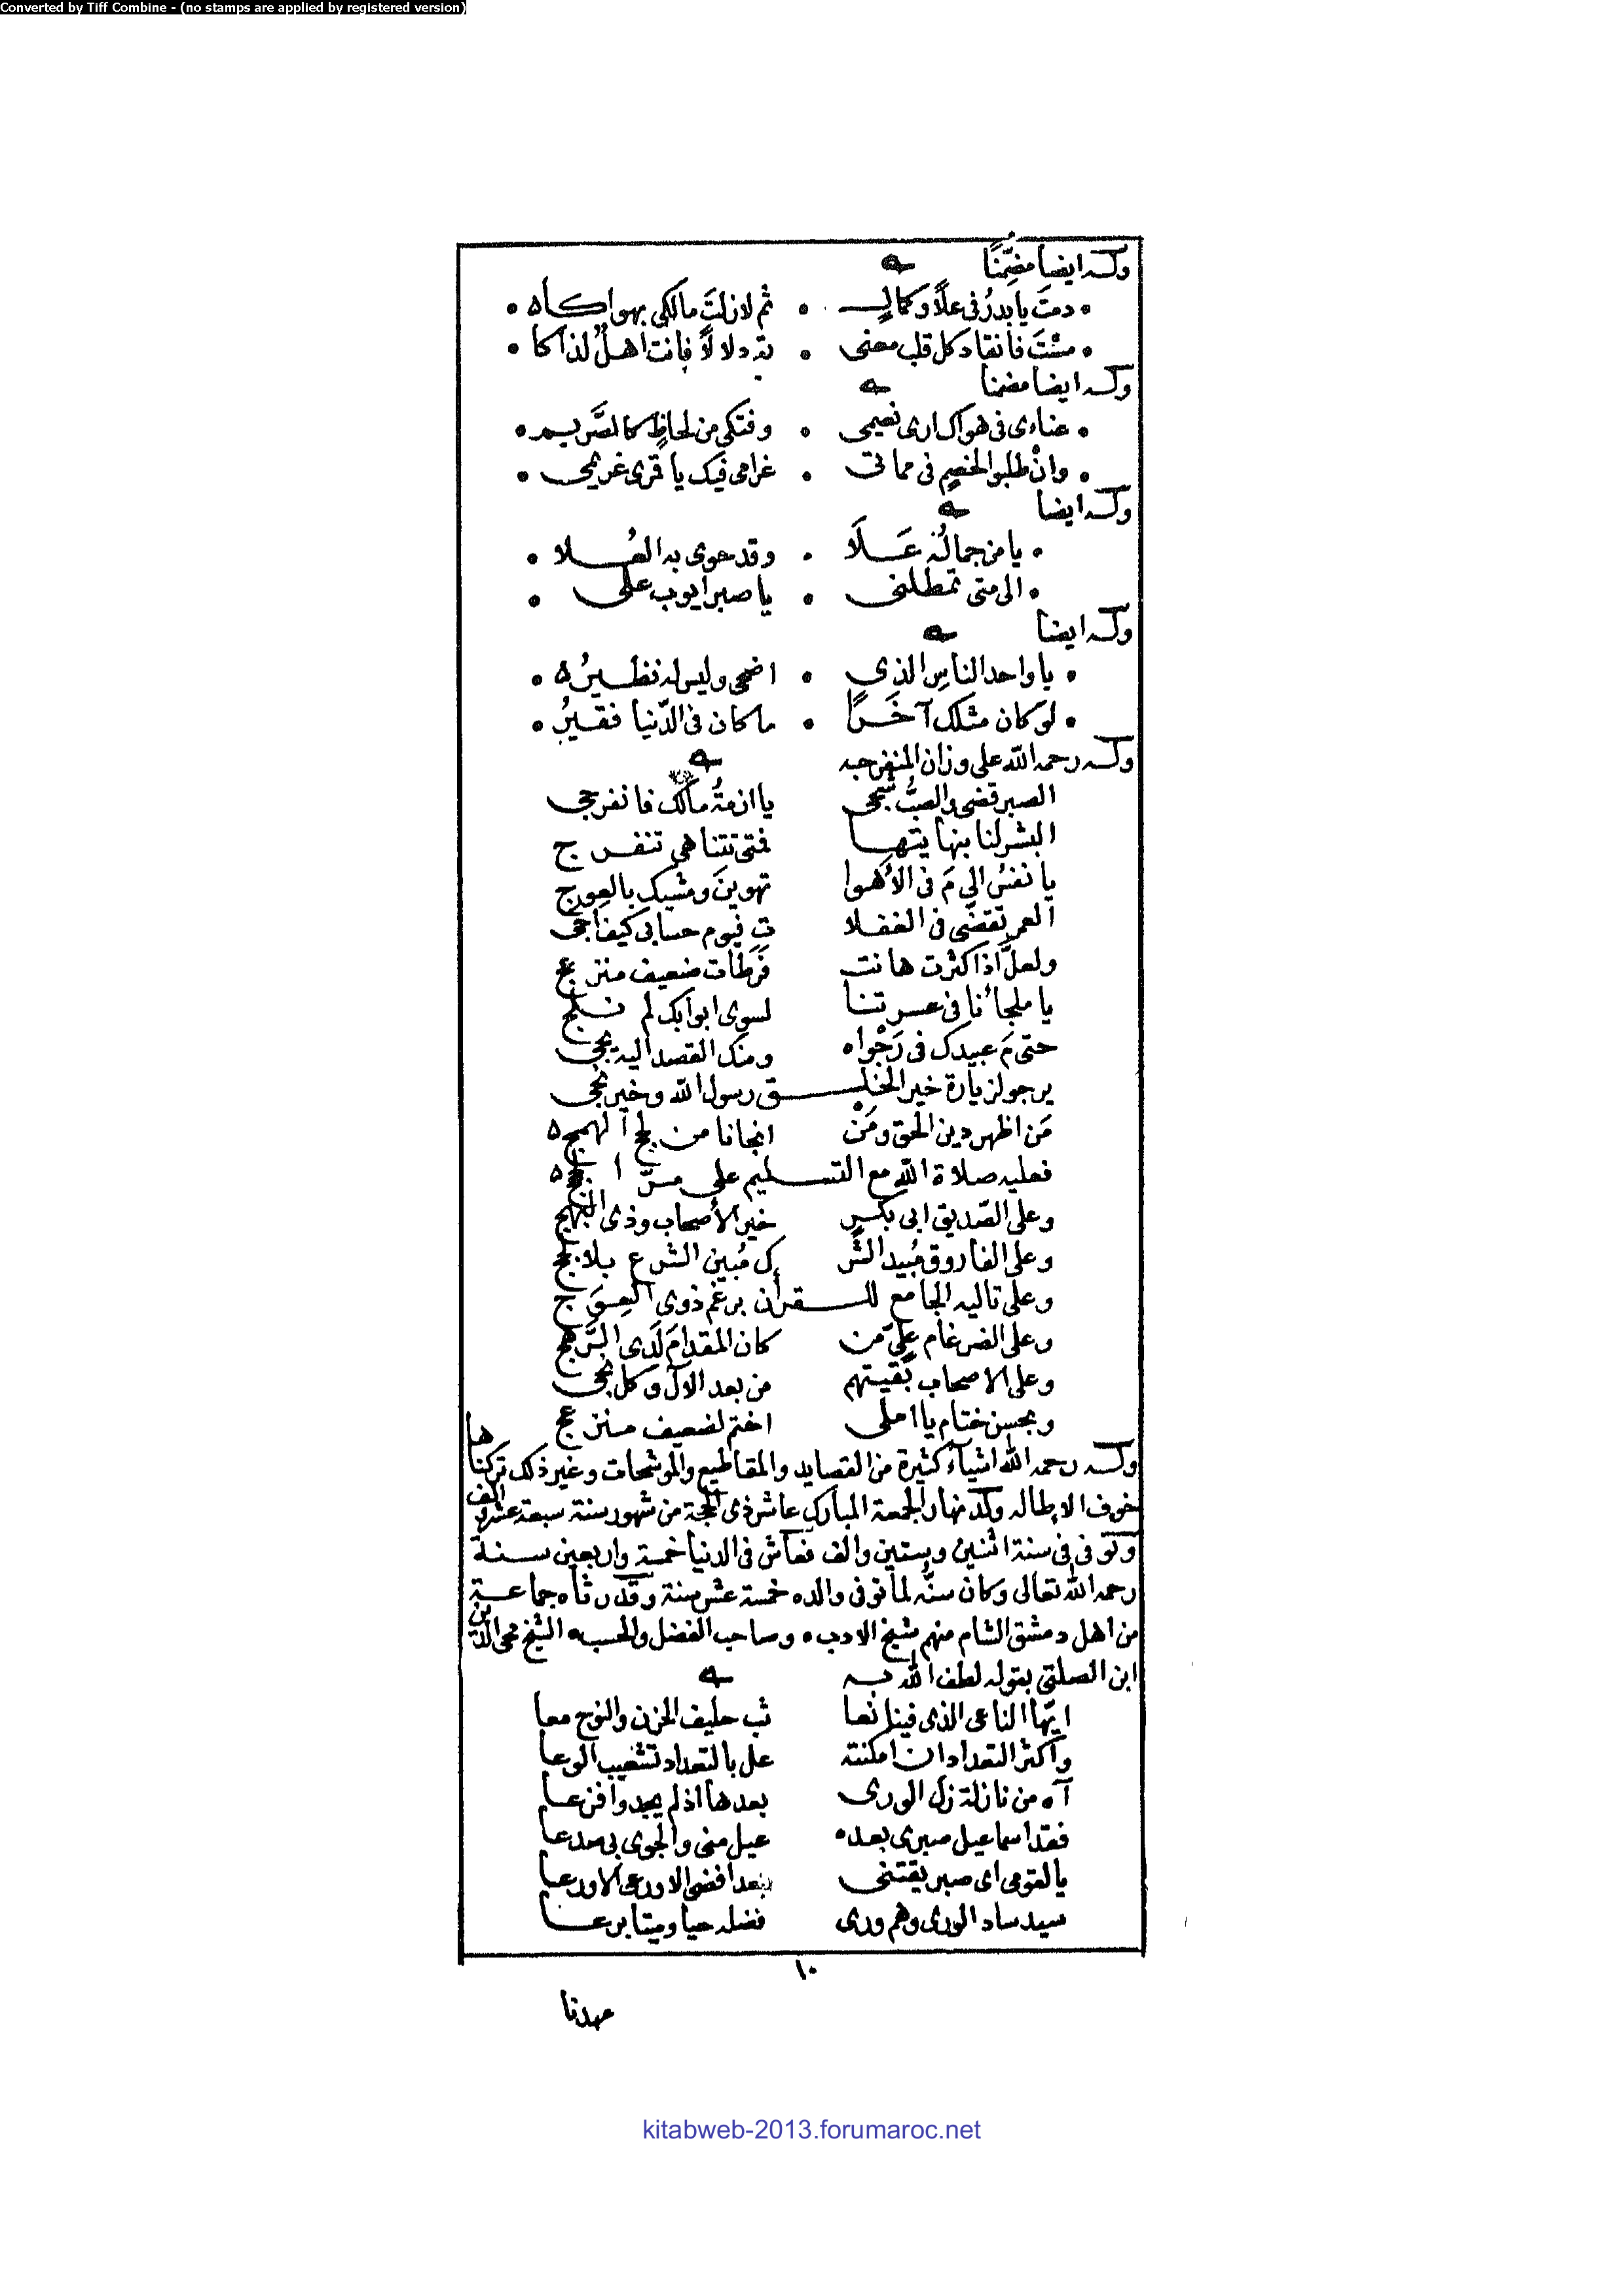 Converted by Tiff Combine - (no stamps are applied by registered version)
وله ايضا مضمّنًا
دمتَ يا بدرُ فى علاً وكمالٍ • ثم لا زلتَ مالكى بهواكا
مِسْتَ فانقاد كل قلب معنى • ته دلالاً فانت اهلٌ لذاكا
وله ايضا مضمنا
عناءى فى هواك ارى نعيمى • وفتكى من لحاظٍ كالصَّريم
وانْ طلبوا الخصيم فى مماتى • غرامى فيك يا قمرى غريمى
وله ايضا
يا من جمالُه عَلَا • وقد حوى به العُلا
الى متى تمطلنى • يا صبر ايوب على
وله ايضا
يا واحد الناسِ الذى • اضحى وليس له نظيرُ
لو كان مثلك آخَرًا • ما كان فى الدّنيا فقيرُ
وله رحمه الله على وزان المنفرجه
الصبر قضى والصبُّ شجى يا ازمةُ مالك فانفرجى
البشر لنا بنهايتها فمتى تتناهى تنفرج
يا نفسُ الى مَ فى الاهوا تهوينَ ومشيك بالعِوج
العمر تقضّى فى الغفلا ت فيوم حسابى كيف اجى
ولعلَّ اذا كثرت هانت فَرَطات ضعيف منزعج
يا ملجائنا فى عسرتنا لسوى ابوابك لم نلج
حتى مَ عبيدك فى رَجْواه ومنك القصد اليه يجى
يرجو لزيارة خير الخلـ ـق رسول الله وخير نجى
مَن اظهر دين الحق ومَنْ انجانا من لجج الهمج
فعليه صلاة الله مع التسليم على مرّ
وعلى الصّديق ابى بكرٍ خير الأصحاب وذى النهج
وعلى الفاروق مُبيد الشّر ك مُبين الشرع بلا لجج
وعلى تاليه الجامع للـ ـقرأن برغم ذوى العِوَج
وعلى الضرغام علىّ من كان المقدامَ لَدى الرَّهج
وعلى الاصحاب بَقيتهم من بعد الآل وكل نجى
وبحسن ختام يا املى اختم لضعيف منزعج
وله رحمه الله اشيآء كثيرة من القصايد والمقاطيع والموشحات وغير ذلك تركناها
خوف الاطاله ولد نهار الجمعة المبارك عاشر ذى الحجة من شهور سنة سبعة عشر والف
وتوفى فى سنة اثنين وستين والف فعاش فى الدنيا خمسة واربعين سنة
رحمه الله تعالى وكان سنّه لما توفى والده خمسة عشر سنة وقد رثاه جماعة
من اهل دمشق الشام منهم شيخ الادب وصاحب الفضل والحسب الشيخ محى الدين
ابن الصلتى بقوله لطف الله به
ايّها الناعى الذى فينا نعا ثب حليف الحزن والنوح معا
واكثر التعداد ان امكنته عل بالتعداد تشغيب الوعا
آه من نازلة زل الورى بعدها اذ لم يجدوا فزعا
فقد اسماعيل صبرى بعده عيل منى والجوى بى صدعا
يا لقومى اى صبر يقتنى بعد افضى الاورعى الاورعا
سيد ساد الورى وهم ورى فضله حيا وميتا برعا
١٠
عهدنا
kitabweb-2013.forumaroc.net